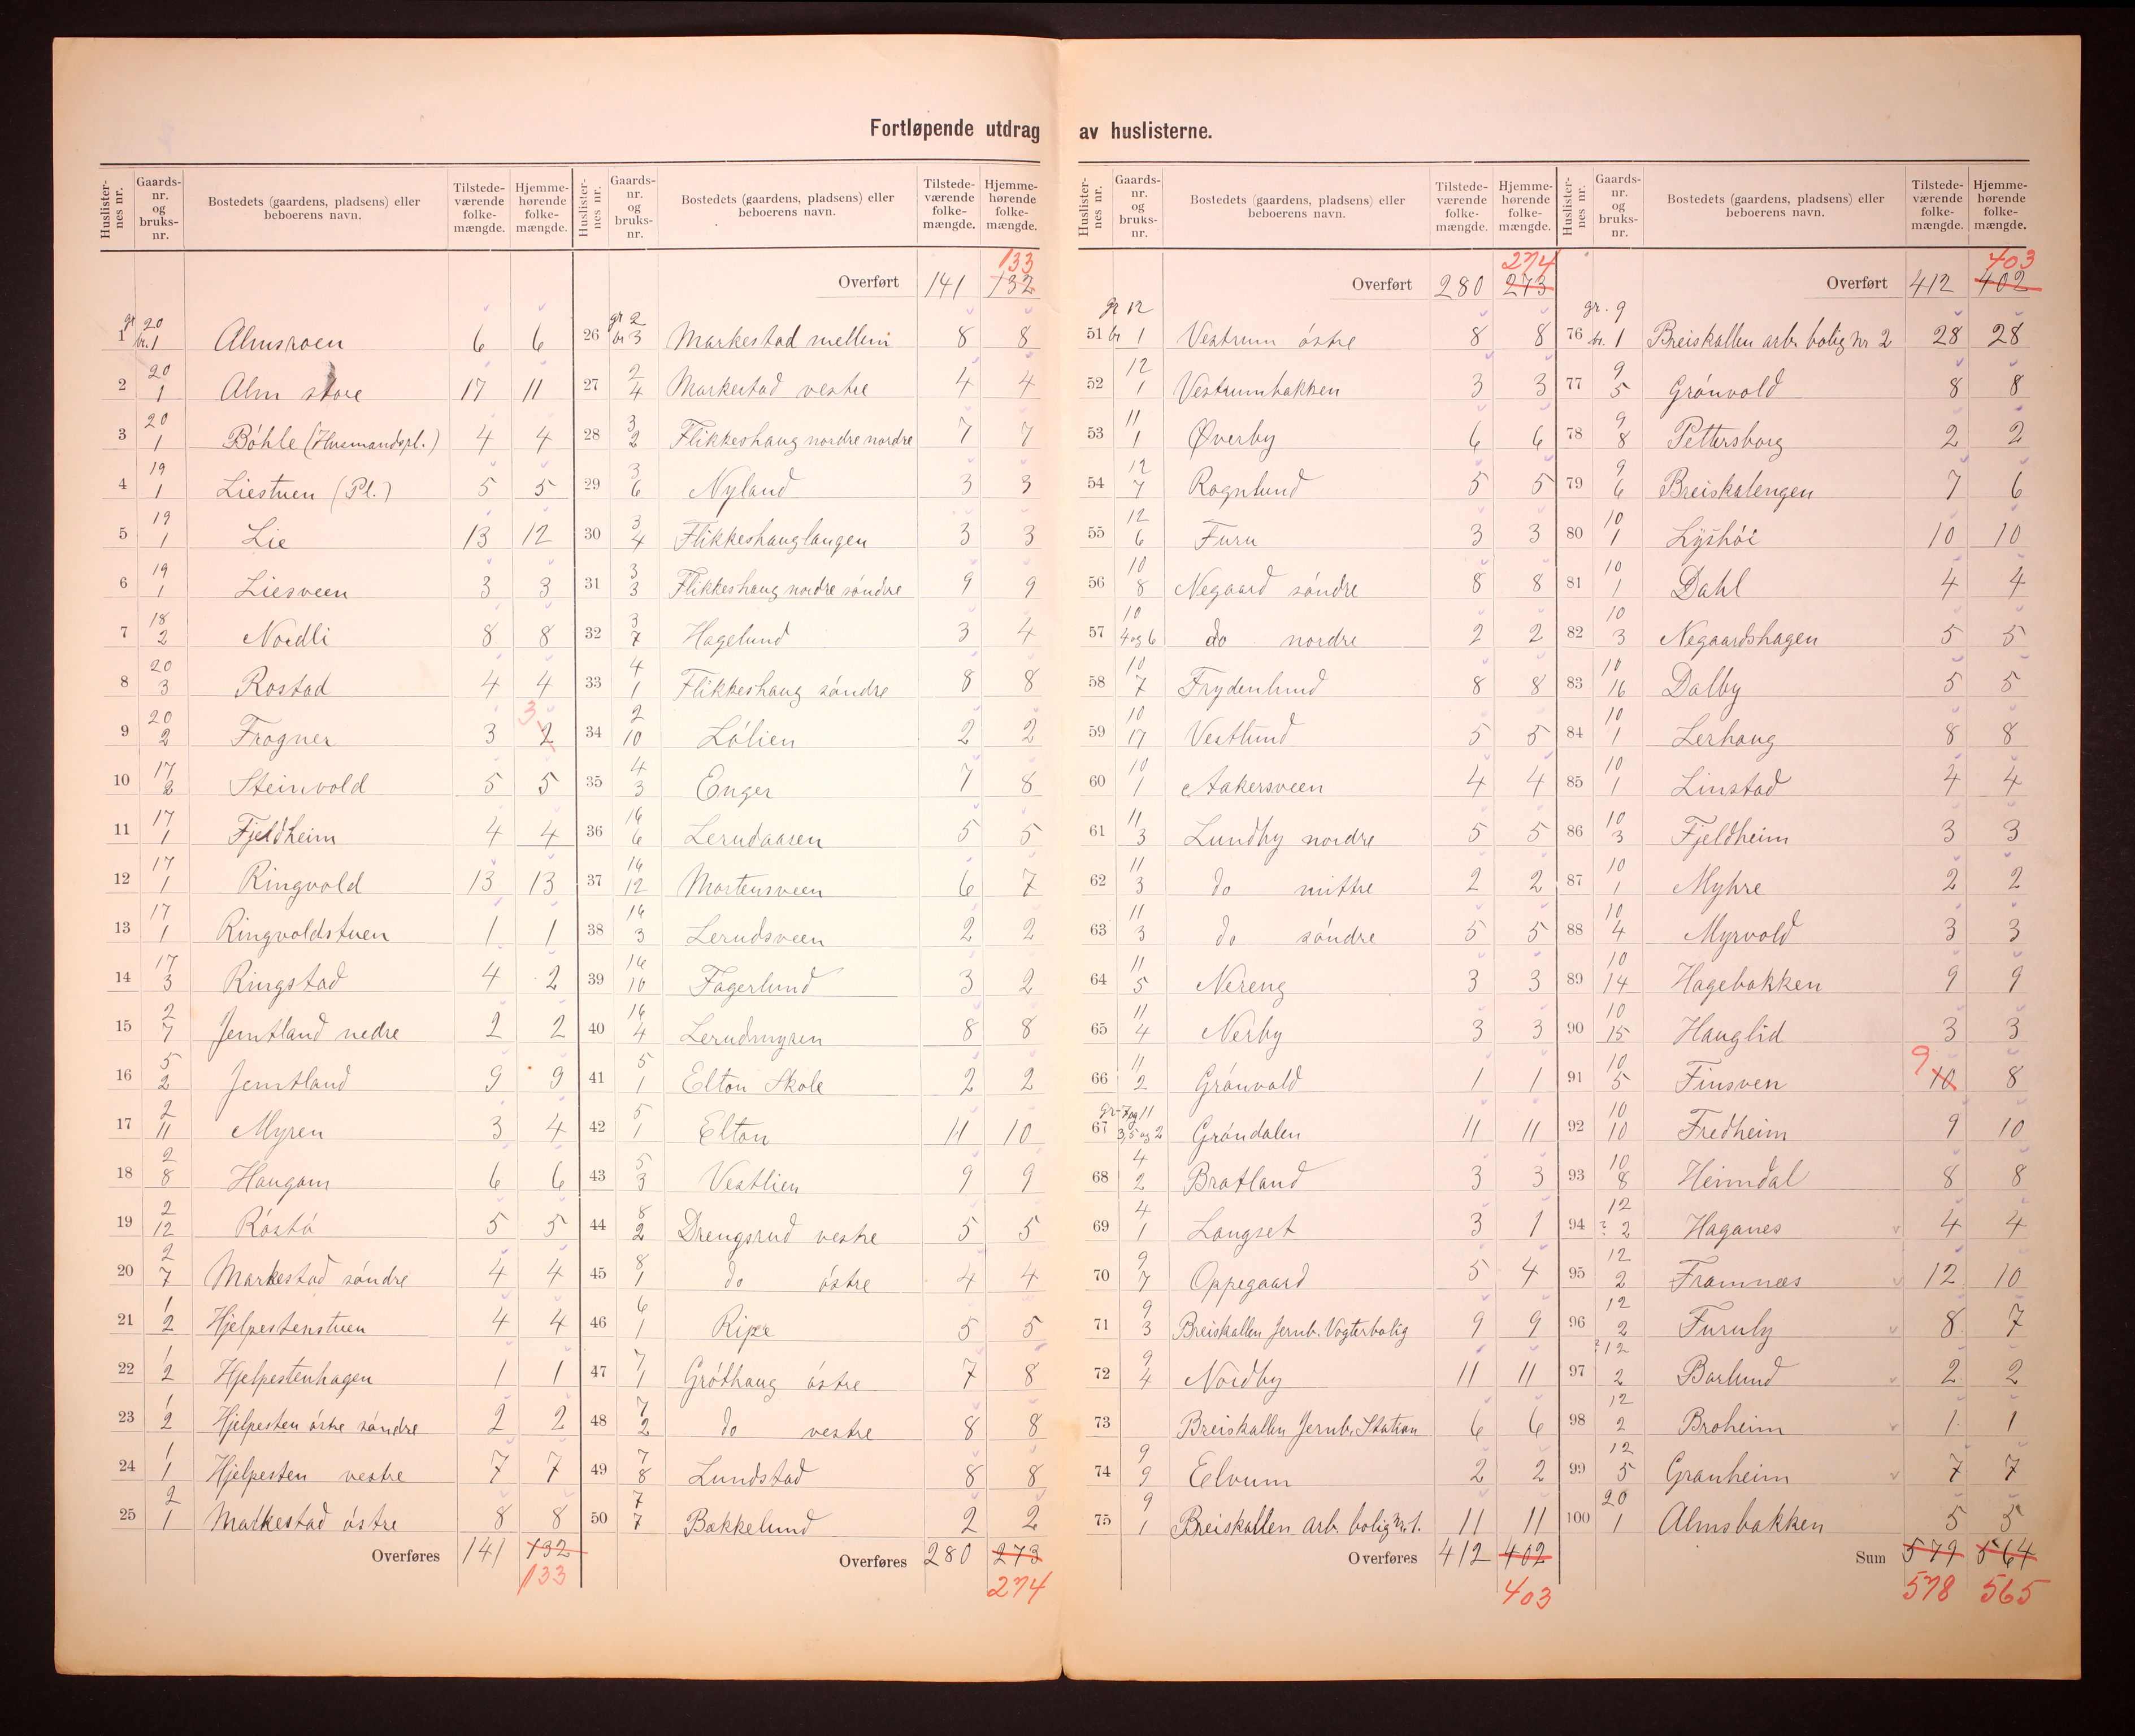 Fortløpende utdrag av huslisterne.
Huslister-nes nr. | Gaards-nr. og bruks-nr. | Bostedets (gaardens, pladsens) eller beboerens navn. | Tilstede-værende folke-mængde. | Hjemme-hørende folke-mængde.
1 gr 20 br. 1 Almsroen 6 6
2 20 1 Alm store 17 11
3 20 1 Böhle (Husmandspl.) 4 4
4 19 1 Liestuen (Pl.) 5 5
5 19 1 Lie 13 12
6 19 1 Liesveen 3 3
7 18 2 Nordli 8 8
8 20 3 Rostad 4 4
9 20 2 Frogner 3 2 3
10 17 2 Steinvold 5 5
11 17 1 Fjeldheim 4 4
12 17 1 Ringvold 13 13
13 17 1 Ringvoldstuen 1 1
14 17 3 Ringstad 4 2
15 2 7 Jemtland nedre 2 2
16 5 2 Jemtland 9 9
17 2 11 Myren 3 4
18 2 8 Haugom 6 6
19 2 12 Röstö 5 5
20 2 7 Markestad söndre 4 4
21 1 2 Hjelpestenstuen 4 4
22 1 2 Hjelpestenhagen 1 1
23 1 2 Hjelpesten östre söndre 2 2
24 1 1 Hjelpesten vestre 7 7
25 2 1 Markestad östre 8 8
Overføres 141 132 133
Huslister-nes nr. | Gaards-nr. og bruks-nr. | Bostedets (gaardens, pladsens) eller beboerens navn. | Tilstede-værende folke-mængde. | Hjemme-hørende folke-mængde.
Overført 141 132 133
26 gr 2 br 3 Markestad mellem 8 8
27 2 4 Markestad vestre 4 4
28 3 2 Flikkeshaug nordre nordre 7 7
29 3 6 Nyland 3 3
30 3 4 Flikkeshauglangen 3 3
31 3 3 Flikkeshaug nordre söndre 9 9
32 3 7 Hagelund 3 4
33 4 1 Flikkeshaug söndre 8 8
34 2 10 Lölien 2 2
35 4 3 Enger 7 8
36 16 6 Lerudaasen 5 5
37 16 12 Mortensveen 6 7
38 16 3 Lerudsveen 2 2
39 16 10 Fagerlund 3 2
40 16 4 Lerudmyren 8 8
41 5 1 Elton Skole 2 2
42 5 1 Elton 11 10
43 5 3 Vestlien 9 9
44 8 2 Drengsrud vestre 5 5
45 8 1 do östre 4 4
46 6 1 Ripe 5 5
47 7 1 Gröthaug östre 7 8
48 7 2 do vestre 8 8
49 7 8 Lundstad 8 8
50 7 7 Bækkelund 2 2
Overføres 280 273 274
Huslister-nes nr. | Gaards-nr. og bruks-nr. | Bostedets (gaardens, pladsens) eller beboerens navn. | Tilstede-værende folke-mængde. | Hjemme-hørende folke-mængde.
Overført 280 273 274
51 gr 12 br 1 Vestrum östre 8 8
52 12 1 Vestrumbakken 3 3
53 11 1 Øverby 6 6
54 12 7 Rognlund 5 5
55 12 6 Furu 3 3
56 10 8 Negaard söndre 8 8
57 10 4 og 6 do nordre 2 2
58 10 7 Frydenlund 8 8
59 10 17 Vestlund 5 5
60 10 1 Aakersveen 4 4
61 11 3 Lundby nordre 5 5
62 11 3 do mittre 2 2
63 11 3 do söndre 5 5
64 11 5 Nereng 3 3
65 11 4 Nerby 3 3
66 11 2 Grönvold 1 1
67 gr 7 og 11 3, 5 og 2 Gröndalen 11 11
68 4 2 Bratland 3 3
69 4 1 Langset 3 1
70 9 7 Oppegaard 5 4
71 9 3 Breiskallen Jernb. Vogterbolig 9 9
72 9 4 Nordby 11 11
73 Breiskallen Jernb. Station 6 6
74 9 9 Eelvum 2 2
75 9 1 Breiskallen arb. bolig Nr. 1. 11 11
Overføres 412 402 403
Huslister-nes nr. | Gaards-nr. og bruks-nr. | Bostedets (gaardens, pladsens) eller beboerens navn. | Tilstede-værende folke-mængde. | Hjemme-hørende folke-mængde.
Overført 412 402 403
76 gr. 9 br. 1 Breiskallen arb. bolig Nr 2 28 28
77 9 5 Grönvold 8 8
78 9 8 Pettersborg 2 2
79 9 6 Breiskalengen 7 6
80 10 1 Lyshöi 10 10
81 10 1 Dahl 4 4
82 10 3 Negaardshagen 5 5
83 10 16 Dalby 5 5
84 10 1 Lerhaug 8 8
85 10 1 Linstad 4 4
86 10 3 Fjeldheim 3 3
87 10 1 Myhre 2 2
88 10 4 Myrvold 3 3
89 10 14 Hagebakken 9 9
90 10 15 Hauglid 3 3
91 10 5 Finsven 10 9 8
92 10 10 Fredheim 9 10
93 10 8 Heimdal 8 8
94 12 ? 2 Haganes 4 4
95 12 2 Framnæs 12 10
96 12 2 Furuly 8 7
97 ? 12 2 Barlund 2 2
98 12 2 Broheim 1 1
99 12 5 Granheim 7 7
100 20 1 Almsbakken 5 5
Sum 579 564
578 565